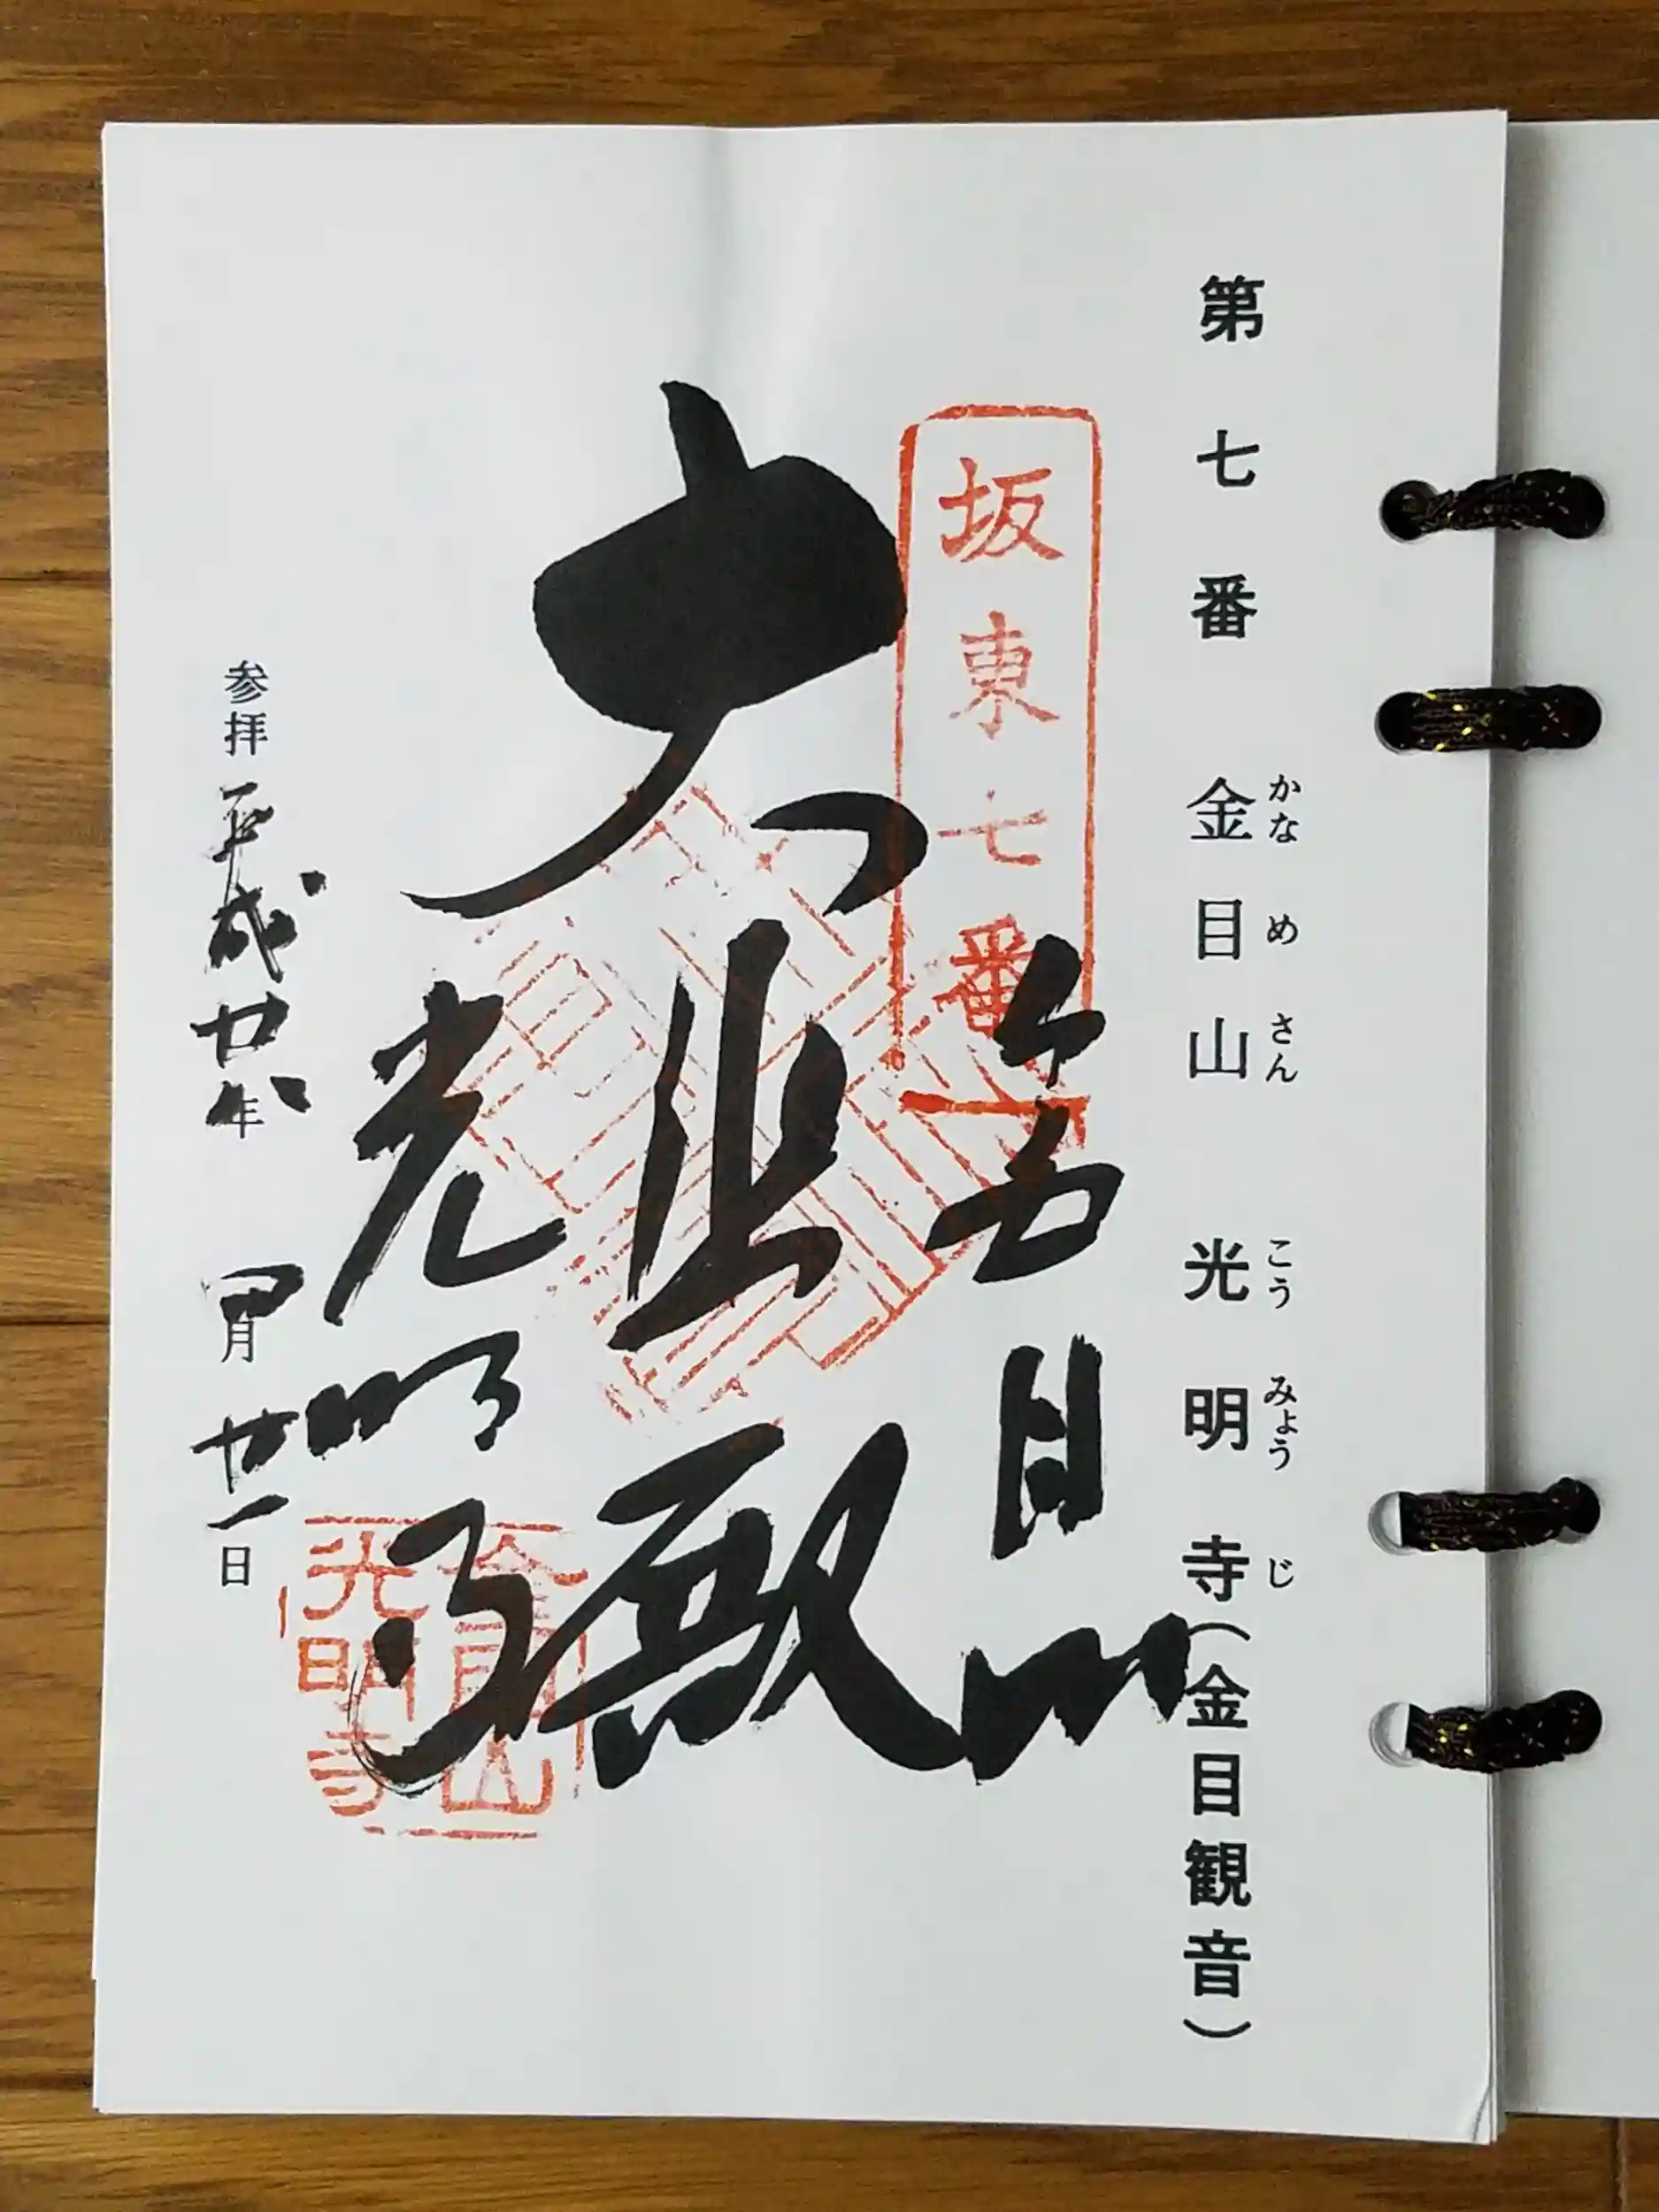 第七番 金目山 光明寺(金目観音)
かなめさん こうみょうじ
坂東七番
金目山
大悲殿
光明寺
金目山
光明寺
参拝 平成廿八年 四月 廿一日